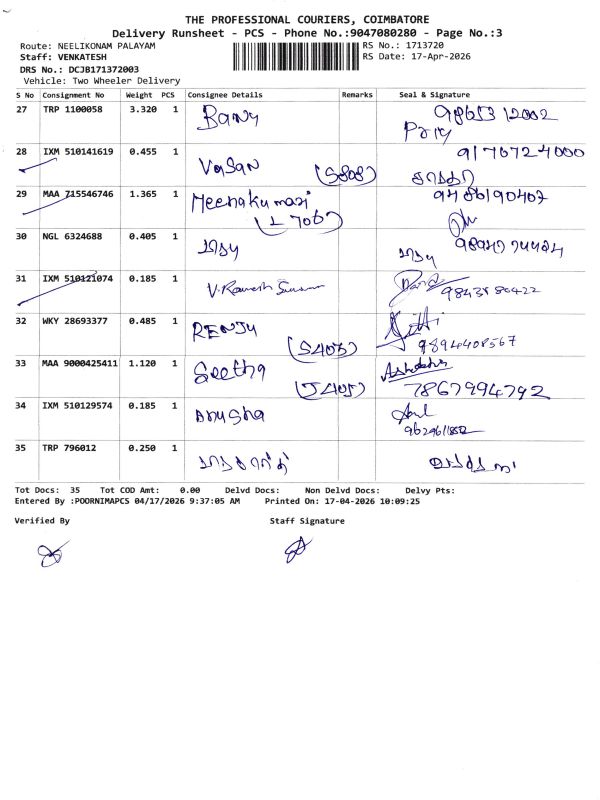 THE PROFESSIONAL COURIERS, COIMBATORE
Delivery Runsheet - PCS - Phone No.:9047080280 - Page No.:3
Route: NEELIKONAM PALAYAM RS No.: 1713720
Staff: VENKATESH RS Date: 17-Apr-2026
DRS No.: DCJB171372003
Vehicle: Two Wheeler Delivery
S No Consignment No Weight PCS Consignee Details Remarks Seal & Signature
27 TRP 1100058 3.320 1
28 IXM 510141619 0.455 1 Vasan (S808) 9176724000
29 MAA 715546746 1.365 1 Meenakumari 9486190407
30 NGL 6324688 0.405 1
31 IXM 510121074 0.185 1
32 WKY 28693377 0.485 1 RENJU (S403) 9894408567
33 MAA 9000425411 1.120 1 Seetha (J405) 7867994792
34 IXM 510129574 0.185 1 Anusha
35 TRP 796012 0.250 1
Tot Docs: 35 Tot COD Amt: 0.00 Delvd Docs: Non Delvd Docs: Delvy Pts:
Entered By :POORNIMAPCS 04/17/2026 9:37:05 AM Printed On: 17-04-2026 10:09:25
Verified By Staff Signature